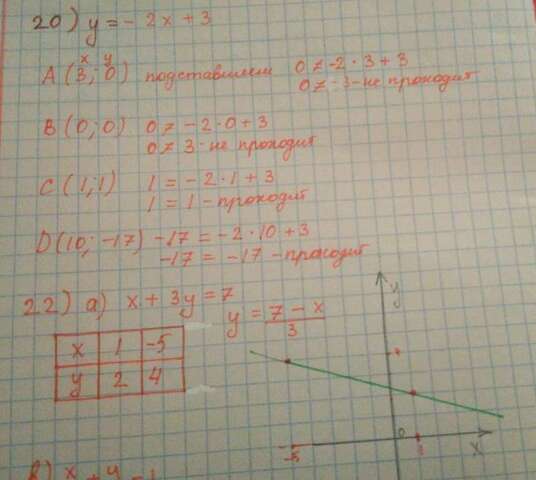 20) y = - 2x + 3
x y
A (3; 0) подставляем 0 ≠ -2 · 3 + 3
0 ≠ -3 - не проходит
B (0; 0) 0 ≠ -2 · 0 + 3
0 ≠ 3 - не проходит
C (1; 1) 1 = -2 · 1 + 3
1 = 1 - проходит
D (10; -17) -17 = -2 · 10 + 3
-17 = -17 - проходит
22) а) x + 3y = 7
y = 7 - x / 3
x 1 -5
y 2 4
y
-5 0 1 x
x + y